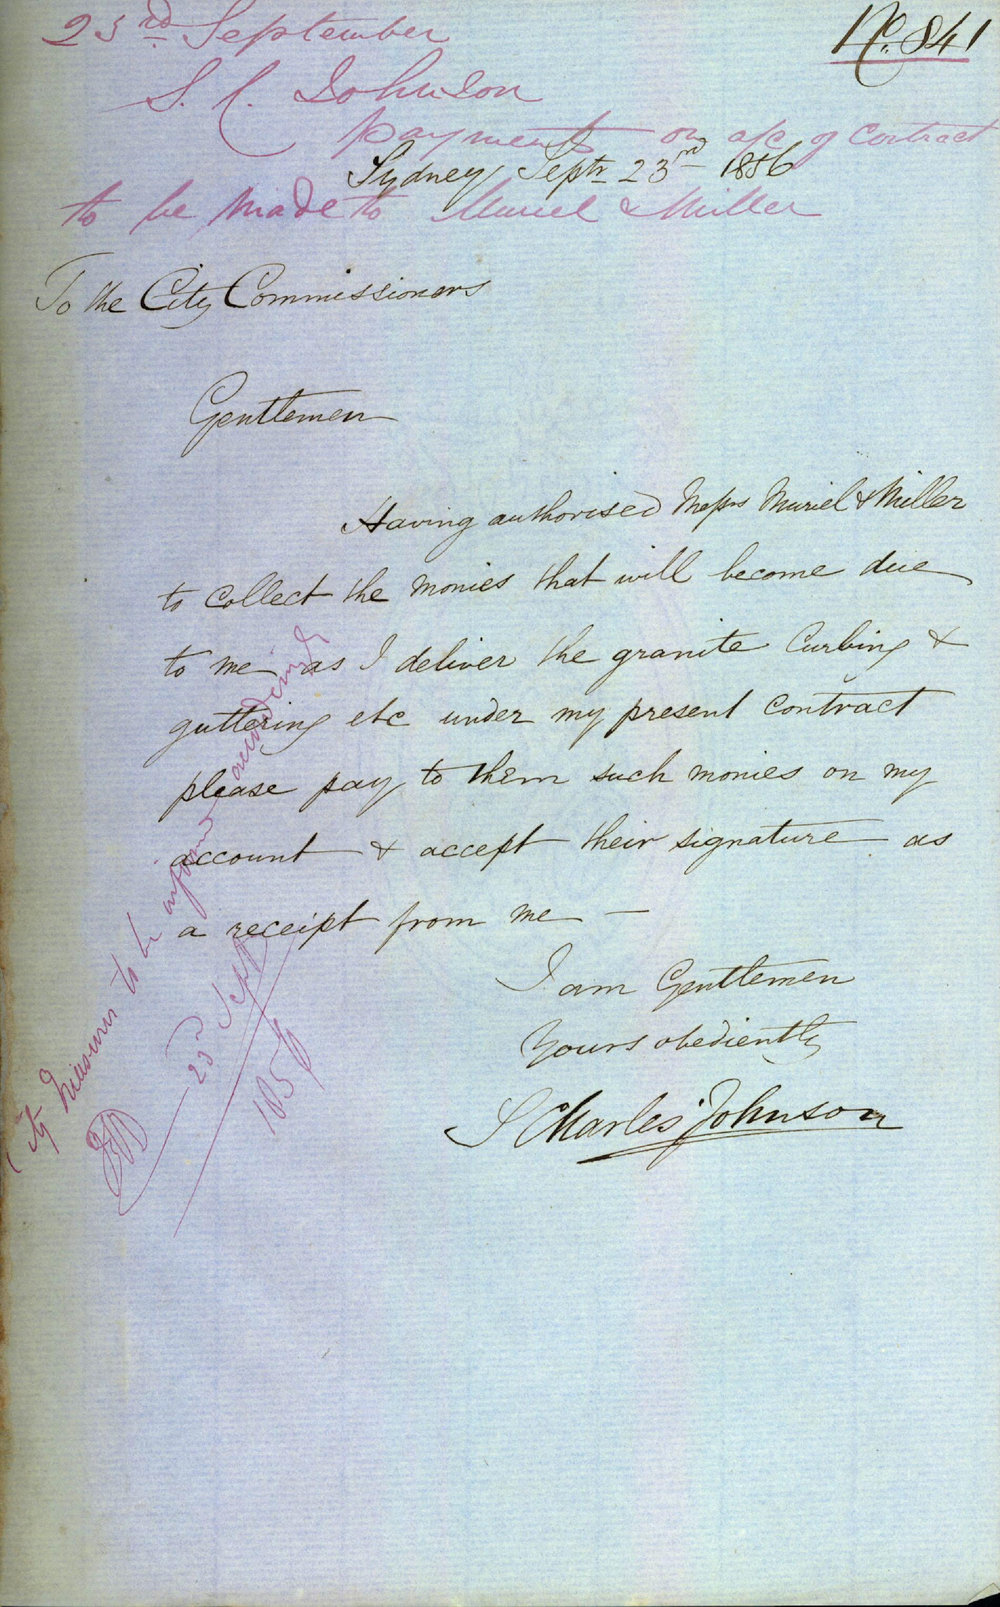 No. 841
23rd September
S. C. Johnson
payments on a/c of contract
Sydney Septr 23rd 1856
to be made to Muriel & Miller
To the City Commissioners
Gentlemen
Having authorised Messrs Muriel & Miller
to collect the monies that will become due
to me as I deliver the granite Curbing &
guttering etc under my present contract
please pay to them such monies on my
account & accept their signature as
a receipt from me —
I am Gentlemen
Yours obediently
S Charles Johnson
City Treasurer to be informed accordingly
23rd Sept
1856